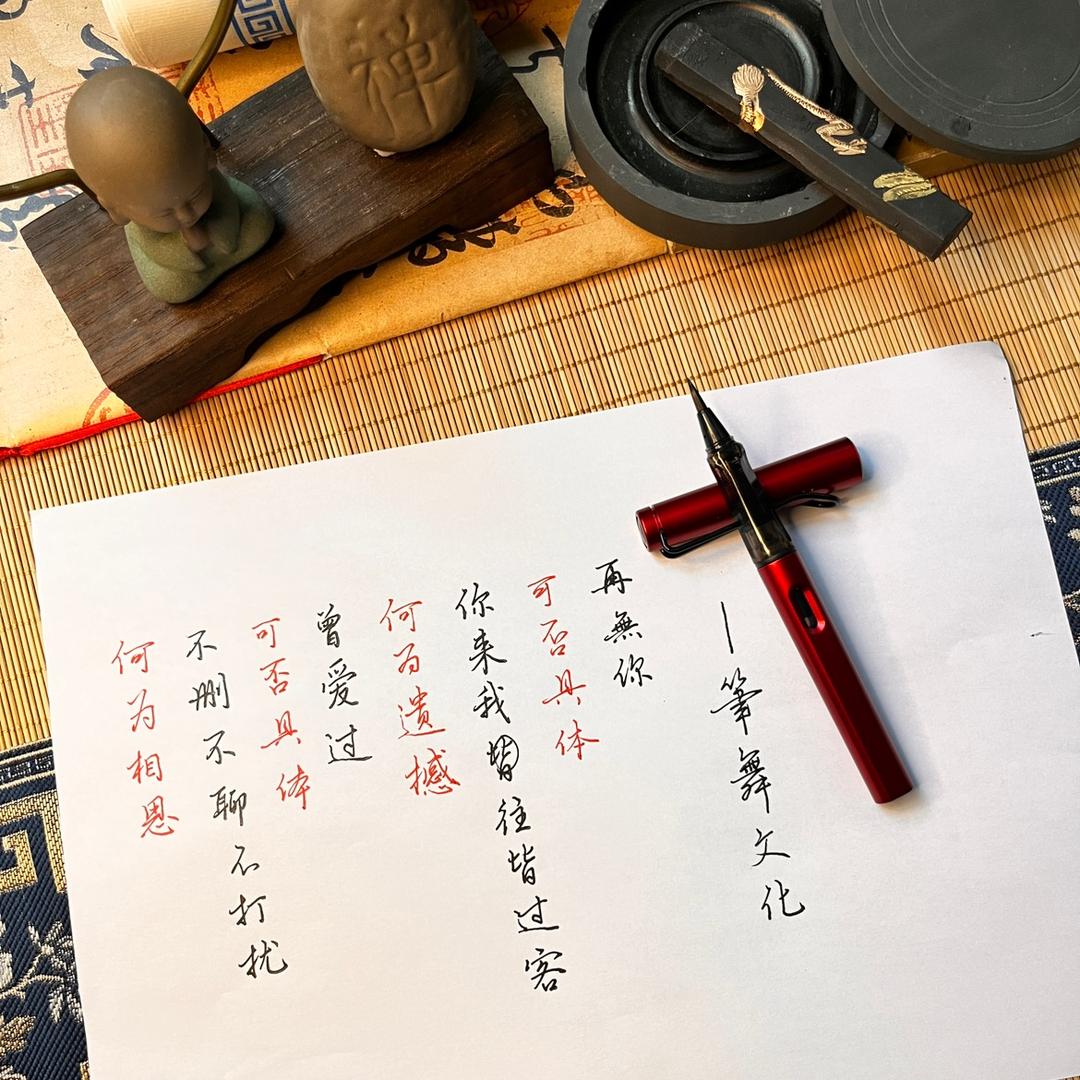 禪
何为相思
不删不聊不打扰
可否具体
曾爱过
何为遗憾
你来我皆往皆过客
可否具体
再無你
—筆舞文化